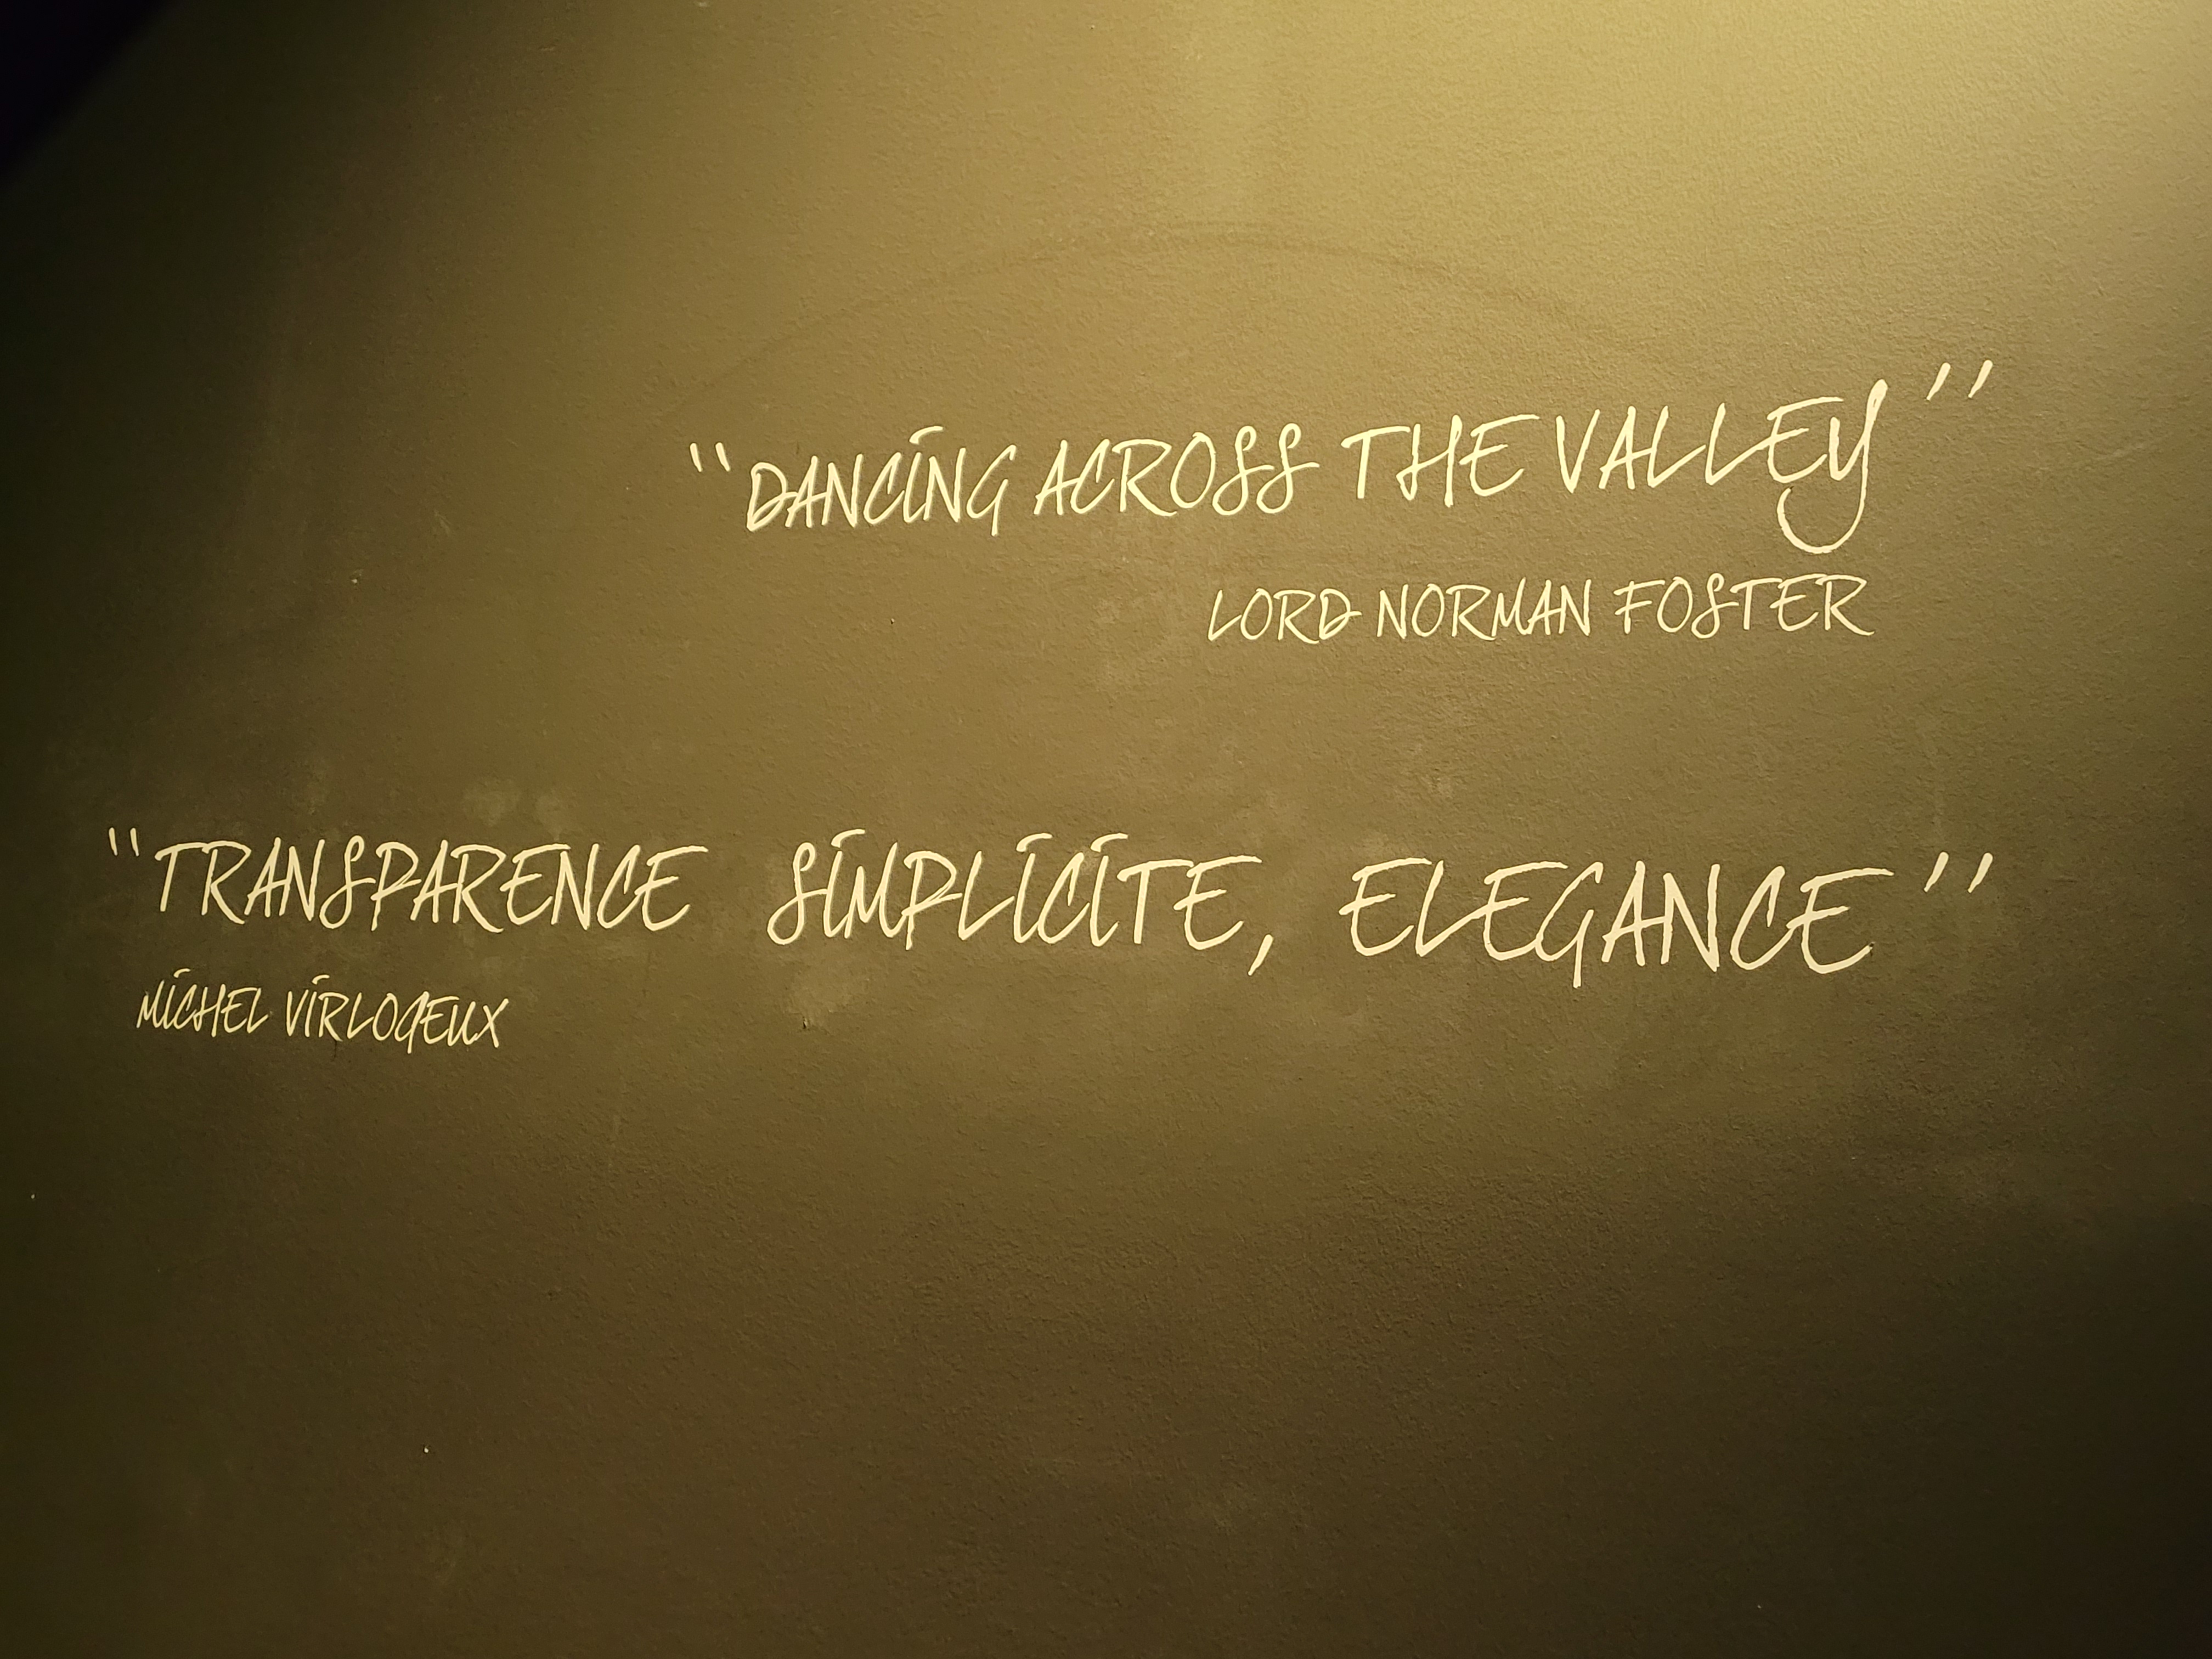 "DANCING ACROSS THE VALLEY"
LORD NORMAN FOSTER
"TRANSPARENCE SIMPLICITE, ELEGANCE"
MICHEL VIRLOGEUX